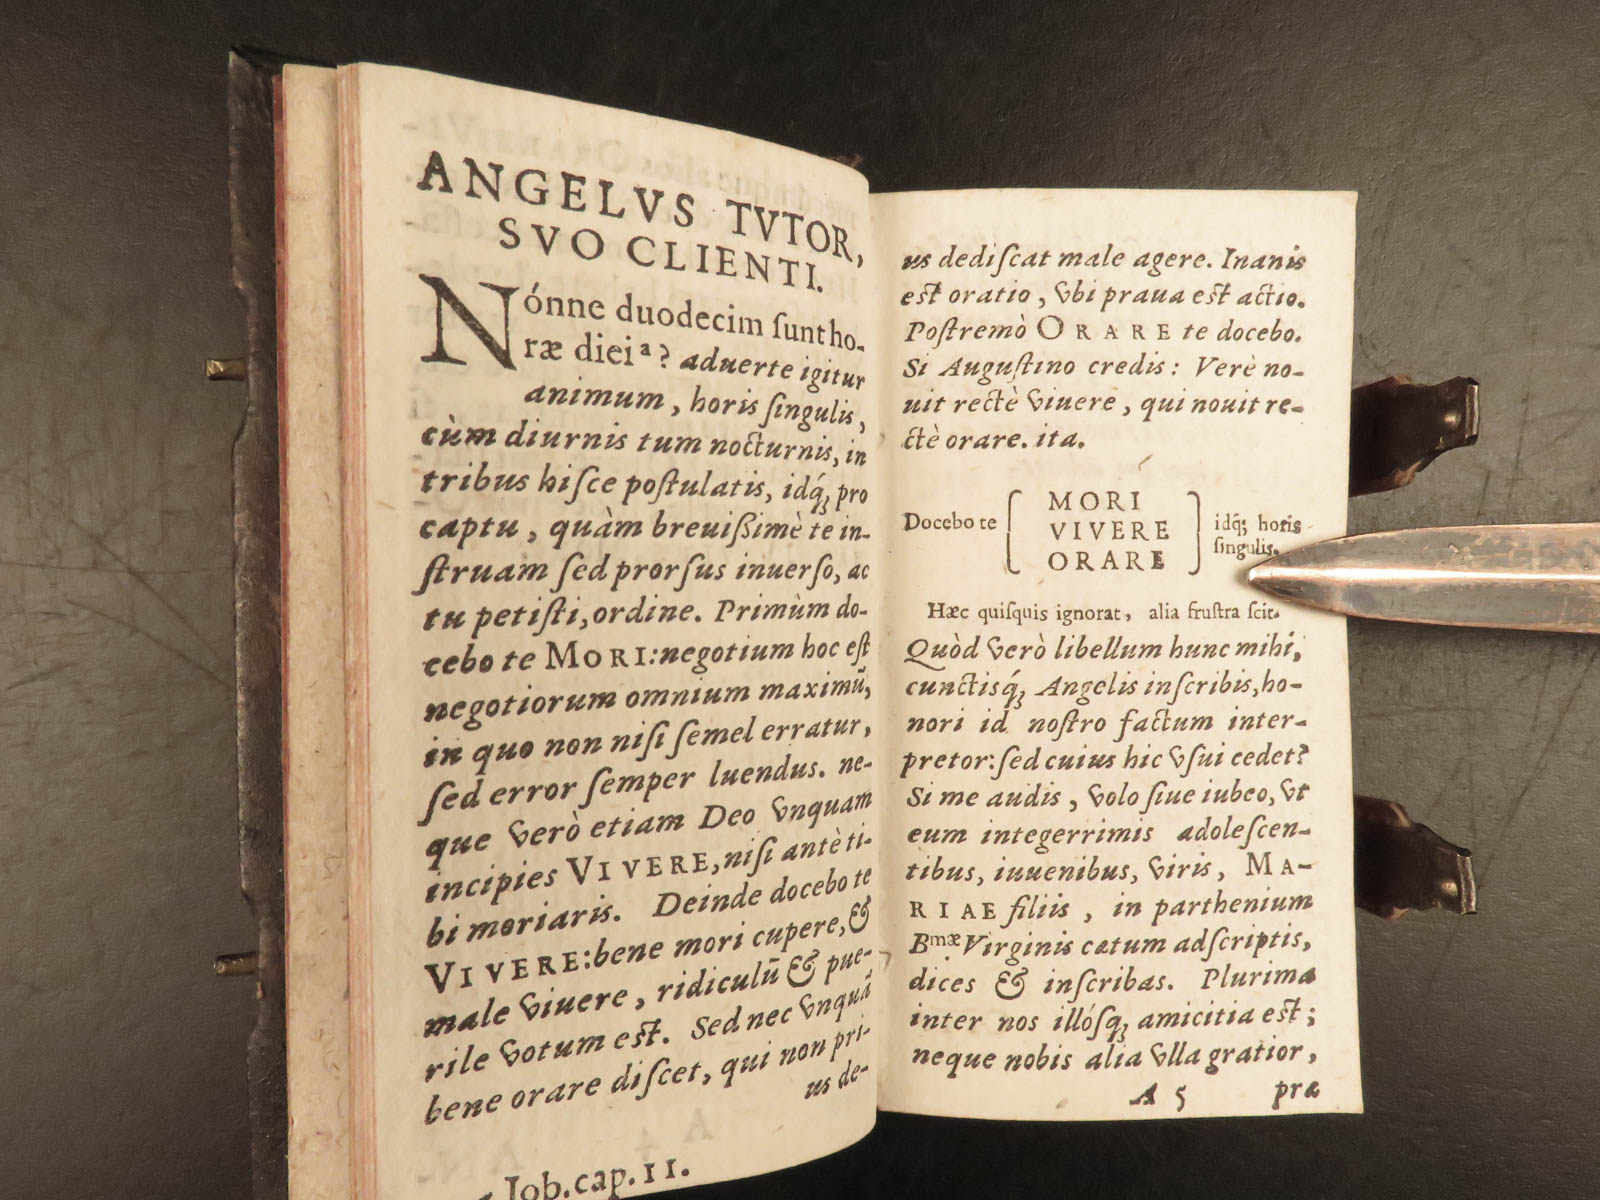 ANGELVS TVTOR,
SVO CLIENTI.
Nónne duodecim ſunt ho-
ræ diei ª? aduerte igitur
animum, horis ſingulis,
cùm diurnis tum nocturnis, in
tribus hiſce poſtulatis, idq́; pro
captu, quàm breuißimè te in-
ſtruam ſed prorſus inuerſo, ac
tu petiſti, ordine. Primùm do-
cebo te MORI: negotium hoc eſt
negotiorum omnium maximũ,
in quo non niſi ſemel erratur,
ſed error ſemper luendus. ne-
que verò etiam Deo vnquam
incipies VIVERE, niſi antè ti-
bi moriaris. Deinde docebo te
VIVERE: bene mori cupere, &
male viuere, ridiculũ & pue-
rile votum eſt. Sed nec vnquã
bene orare diſcet, qui non pri-
us de-
Iob. cap. 11.
us dediſcat male agere. Inanis
eſt oratio, vbi praua eſt actio.
Poſtremò ORARE te docebo.
Si Auguſtino credis: Verè no-
uit rectè viuere, qui nouit re-
ctè orare. ita.
MORI
Docebo te VIVERE idq́; horis
ORARE ſingulis.
Hæc quiſquis ignorat, alia fruſtra ſcit.
Quòd verò libellum hunc mihi,
cunctisq́; Angelis inſcribis, ho-
nori id noſtro factum inter-
pretor: ſed cuius hic vſui cedet?
Si me audis, volo ſiue iubeo, vt
eum integerrimis adoleſcen-
tibus, iuuenibus, viris, MA-
RIAE filiis, in parthenium
Bmæ Virginis cœtum adſcriptis,
dices & inſcribas. Plurima
inter nos illóſq; amicitia eſt;
neque nobis alia vlla gratior,
A 5 præ